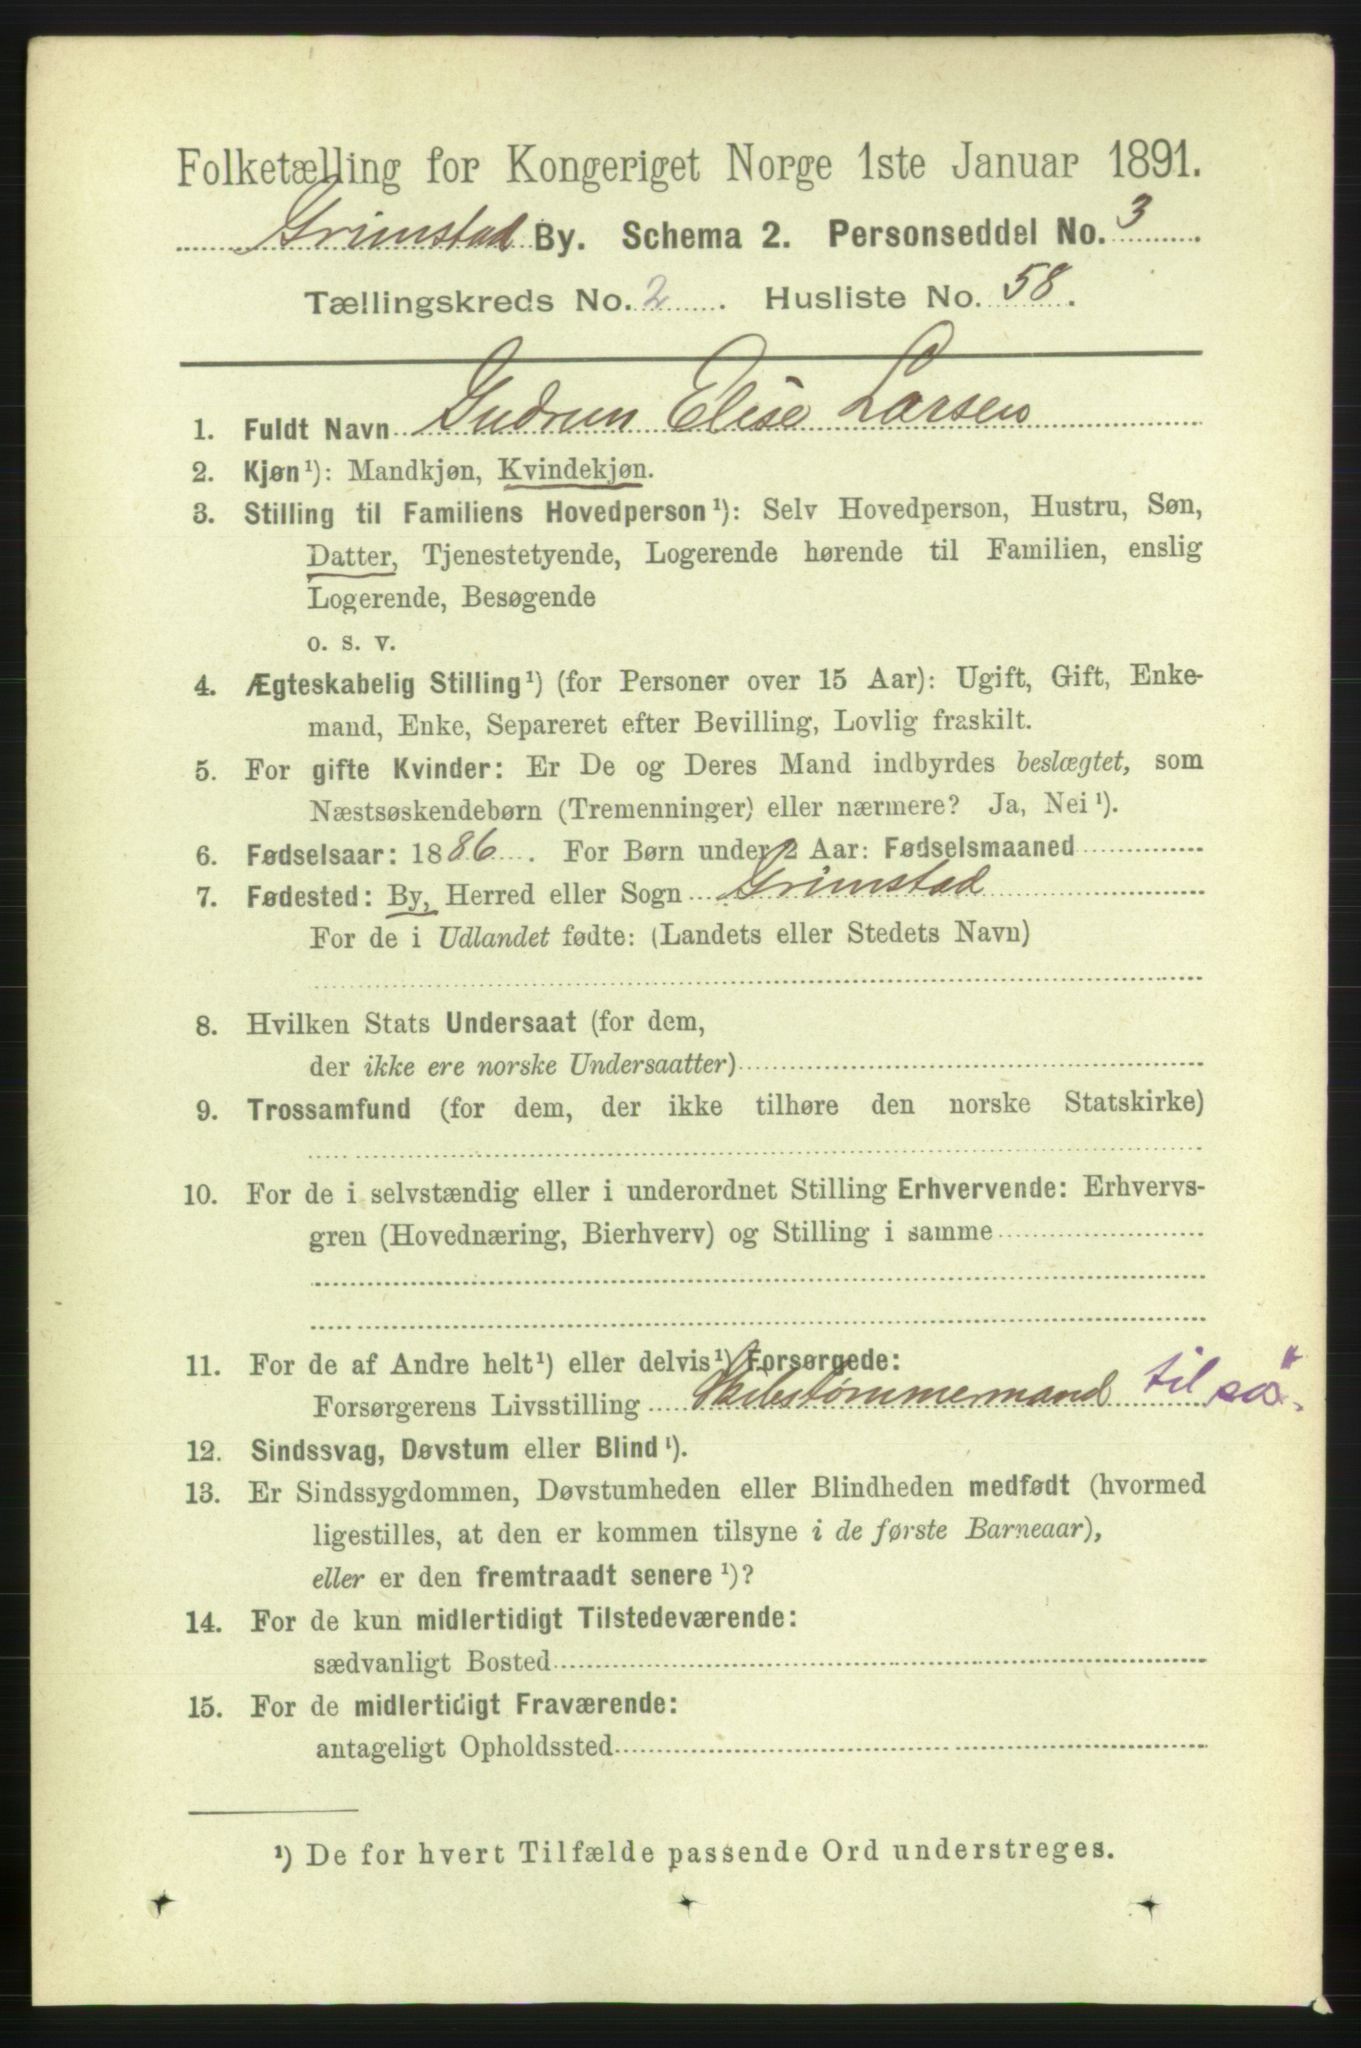 Folketælling for Kongeriget Norge 1ste Januar 1891.
Grimstad By. Schema 2. Personseddel No. 3
Tællingskreds No. 2. Husliste No. 58.
1. Fuldt Navn Gudrun Elise Larsen
2. Kjøn¹): Mandkjøn, Kvindekjøn.
3. Stilling til Familiens Hovedperson¹): Selv Hovedperson, Hustru, Søn,
Datter, Tjenestetyende, Logerende hørende til Familien, enslig
Logerende, Besøgende
o. s. v.
4. Ægteskabelig Stilling¹) (for Personer over 15 Aar): Ugift, Gift, Enke-
mand, Enke, Separeret efter Bevilling, Lovlig fraskilt.
5. For gifte Kvinder: Er De og Deres Mand indbyrdes beslægtet, som
Næstsøskendebørn (Tremenninger) eller nærmere? Ja, Nei¹).
6. Fødselsaar: 1886. For Børn under 2 Aar: Fødselsmaaned
7. Fødested: By, Herred eller Sogn Grimstad
For de i Udlandet fødte: (Landets eller Stedets Navn)
8. Hvilken Stats Undersaat (for dem,
der ikke ere norske Undersaatter)
9. Trossamfund (for dem, der ikke tilhøre den norske Statskirke)
10. For de i selvstændig eller i underordnet Stilling Erhvervende: Erhvervs-
gren (Hovednæring, Bierhverv) og Stilling i samme
11. For de af Andre helt¹) eller delvis¹) Forsørgede:
Forsørgerens Livsstilling Skibstømmermand til sös.
12. Sindssvag, Døvstum eller Blind¹).
13. Er Sindssygdommen, Døvstumheden eller Blindheden medfødt (hvormed
ligestilles, at den er kommen tilsyne i de første Barneaar),
eller er den fremtraadt senere¹)?
14. For de kun midlertidigt Tilstedeværende:
sædvanligt Bosted
15. For de midlertidigt Fraværende:
antageligt Opholdssted
¹) De for hvert Tilfælde passende Ord understreges.